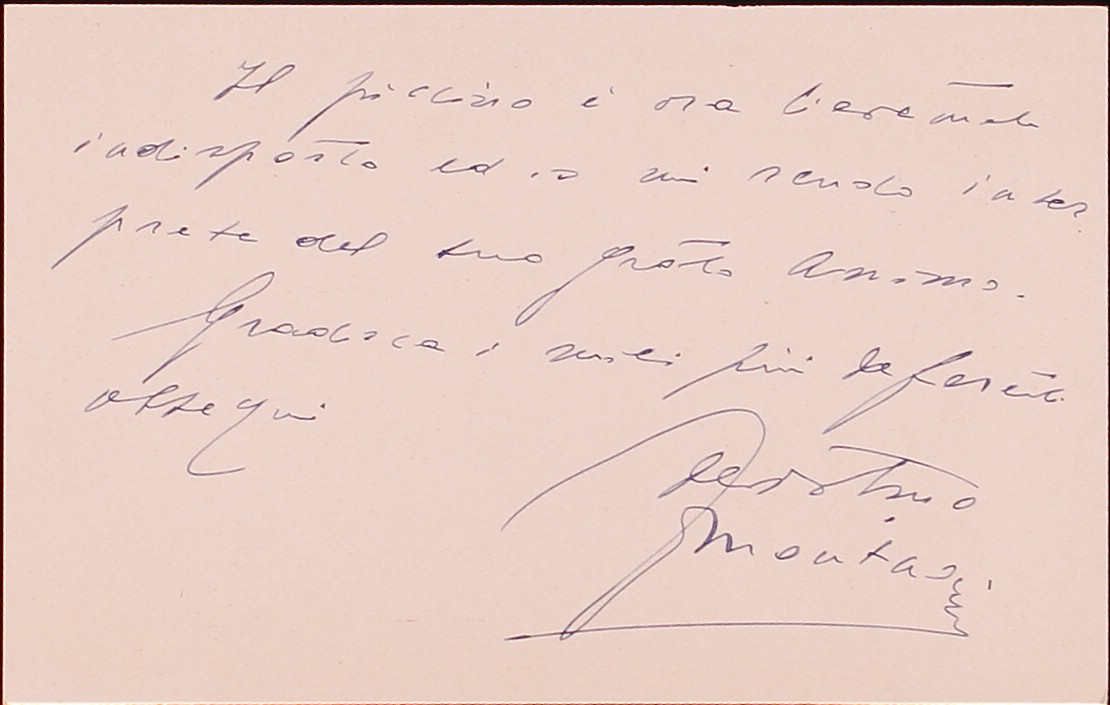 Il piccino è ora lievemente
indisposto ed io mi rendo inter
prete del suo grato animo.
Gradisca i miei più deferenti
ossequi